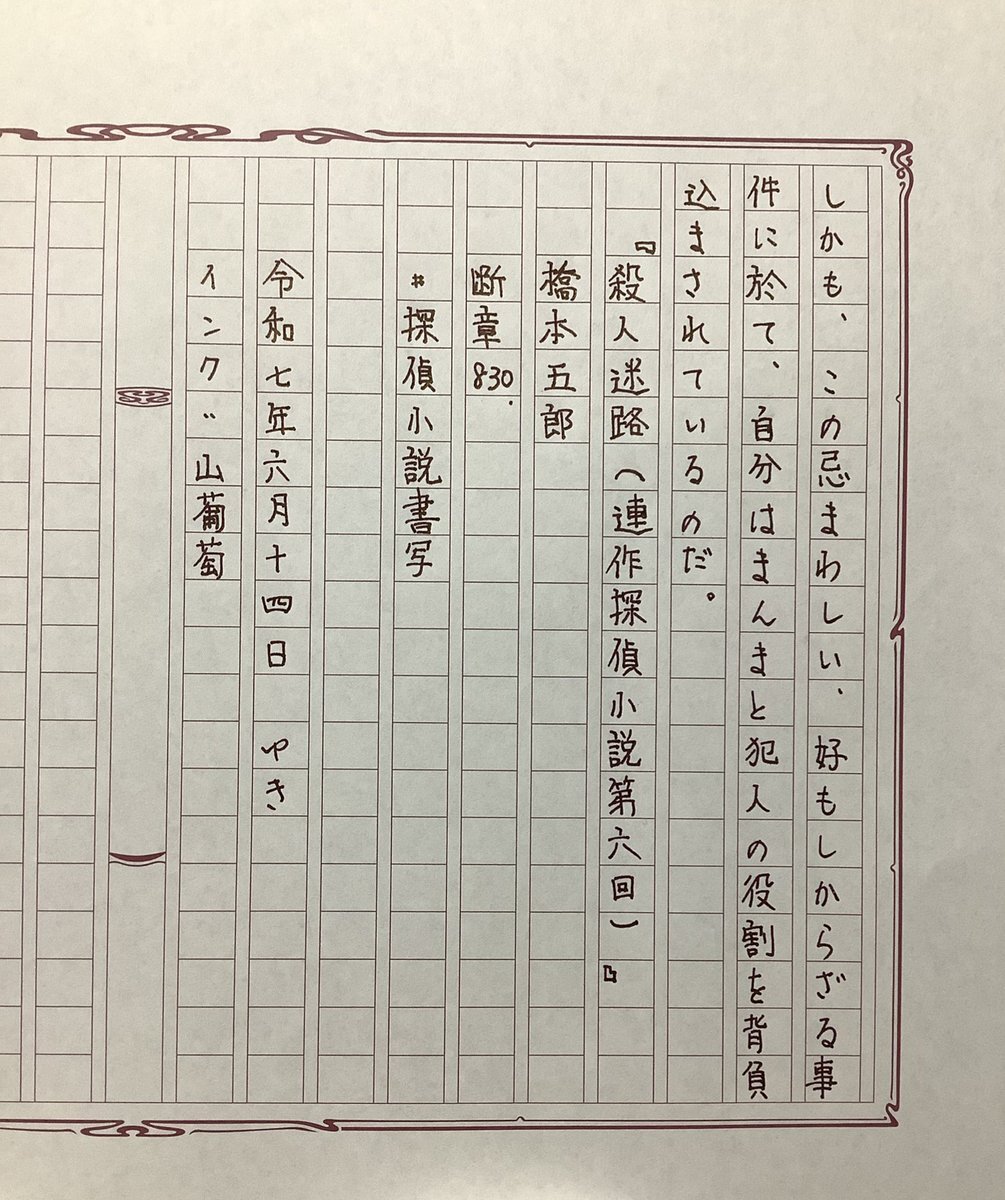 しかも、この忌まわしい、好もしからざる事
件に於て、自分はまんまと犯人の役割を背負
込まされているのだ。
『殺人迷路(連作探偵小説第六回)』
橋本五郎
断章830.
#探偵小説書写
令和七年六月十四日 ゆき
インク〃山葡萄